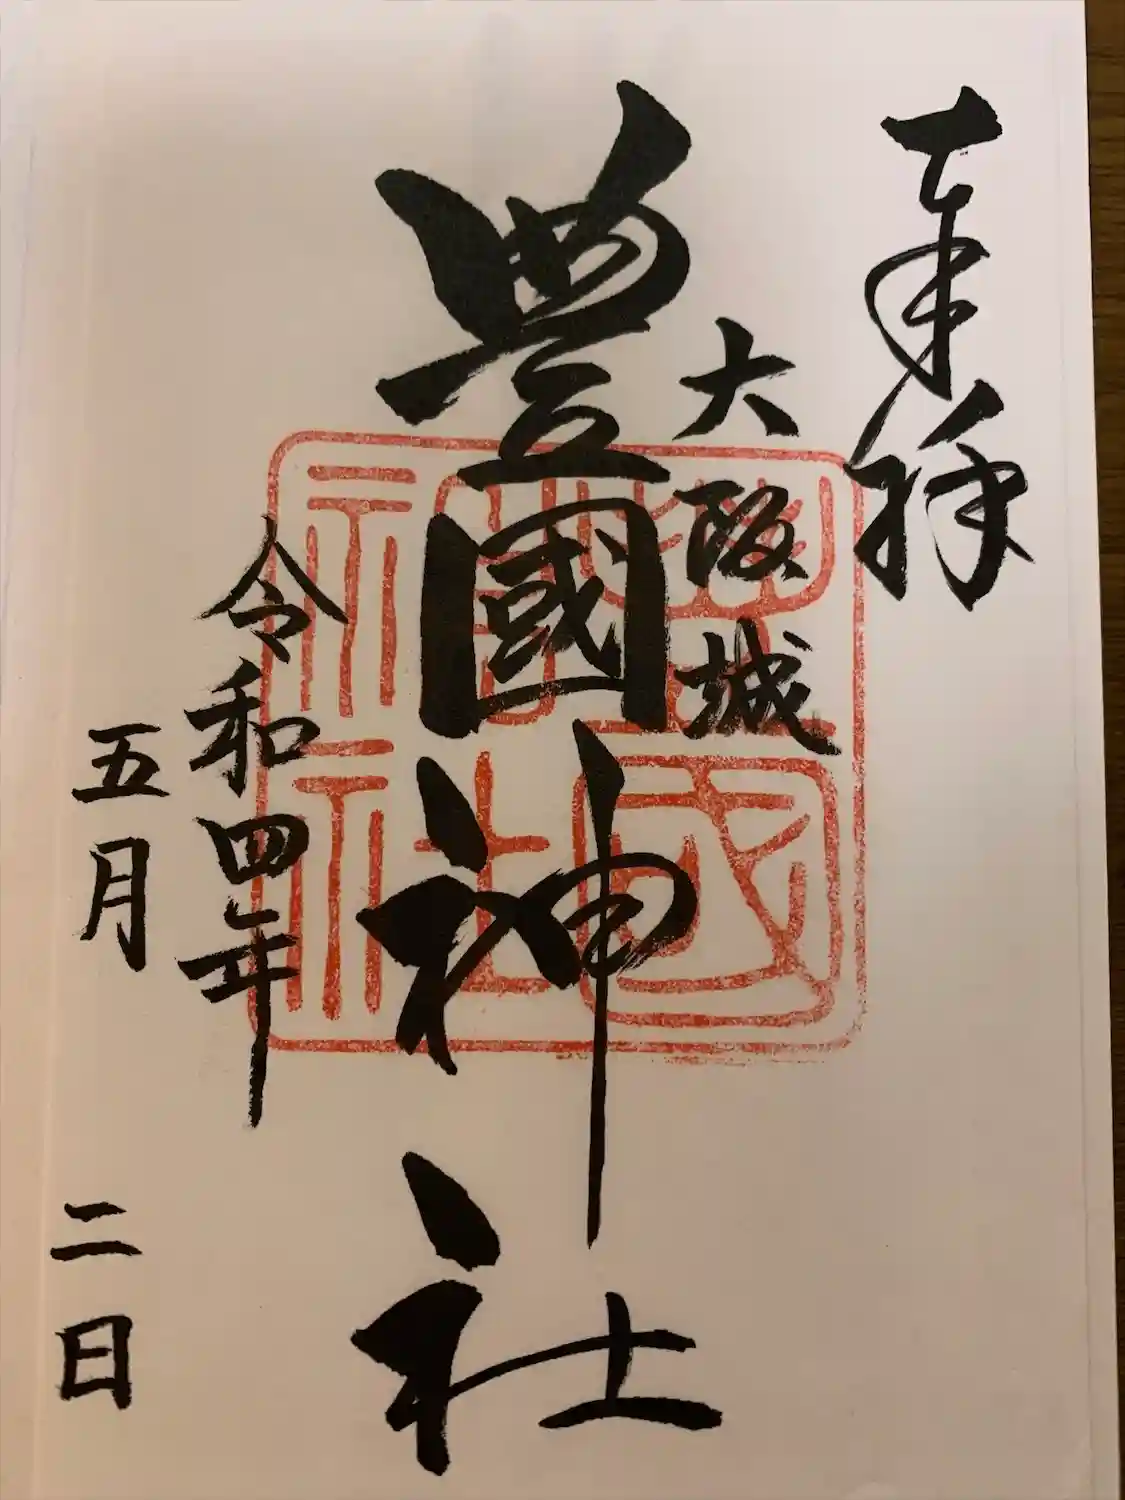 奉拝
大阪城
豊國神社
令和四年
五月 二日
豊國神社